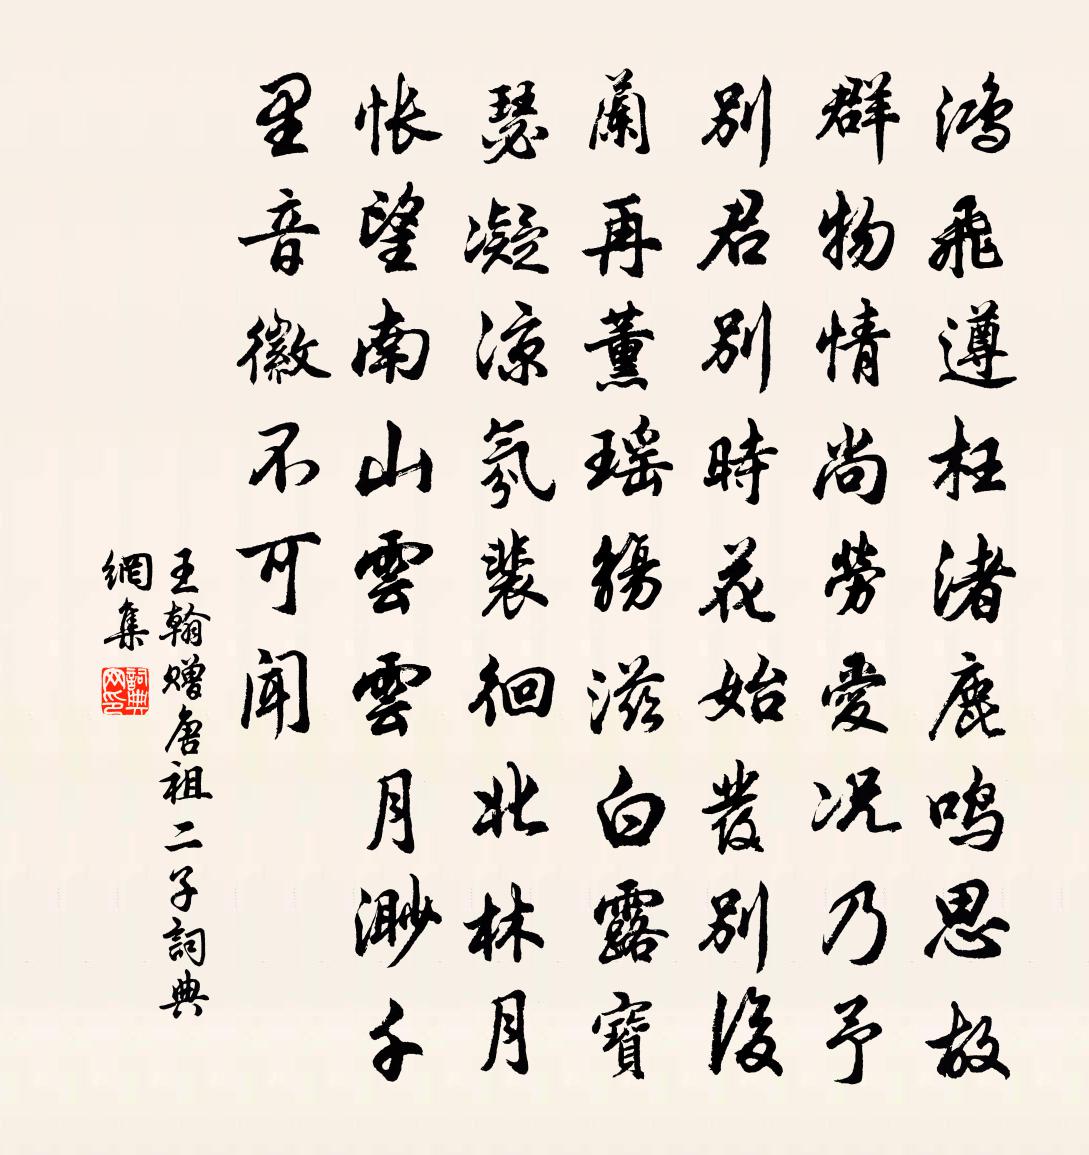 鴻飛遵枉渚鹿鳴思故
群物情尚勞愛況乃予
別君別時花始發別後
蘭再薰瑶觴滋白露寶
瑟凝涼氛裴徊北林月
悵望南山雲雲月渺千
里音徽不可聞
王翰贈唐祖二子詞典
網集
詞典
网印